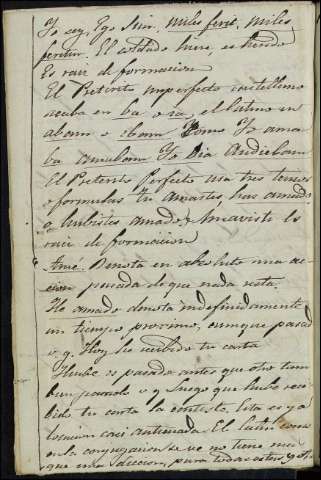 Yo soy, Ego Sum, miles ferit, miles
feritur. El soldado hiere, es herido
Es raiz de formacion
El Pretérito imperfecto castellano
acaba en ba o ia, el latino en
abam o ebam Como Yo ama
ba amabam Yo Oia Audiebam
El Preterito Perfecto usa tres tiempos
o formulas tu amastes, has amado
o hubistes amado, Amavisti Es
raiz de formacion
Amé. Denota en absoluto una ac
cion pasada de que nada resta.
He amado denota indefinidamente
un tiempo proximo, aunque pasado
v. g. Hoy he recibido tu carta
Hube es pasado antes que otro tam
bien pasado v g luego que hube reci
bido tu carta la contesté. Esta es ya
locucion casi anticuada. El latin como
en la conjugacion se ve no tiene mas
que una diccion, para todas estas y